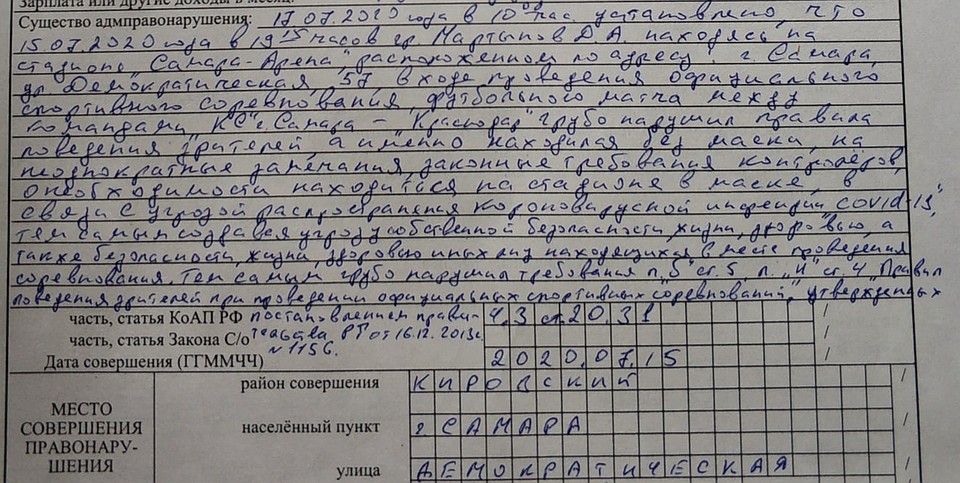 Зарплата или другие доходы в месяц:
Существо адмправонарушения: 17.07.2020 года в 10 00 час. установлено, что
15.07.2020 года в 19 15 часов гр. Мартынов Д.А. находясь на
стадионе „Самара-Арена", расположенном по адресу: г. Самара,
ул. Демократическая, 57, в ходе проведения официального
спортивного соревнования, футбольного матча между
командами „КС" г. Самара – „Краснодар" грубо нарушил правила
поведения зрителей, а именно находился без маски, на
неоднократные замечания, законные требования контролёров,
о необходимости находиться на стадионе в маске, в
связи с угрозой распространения короновирусной инфекции „covid-19",
тем самым создавая угрозу собственной безопасности, жизни, здоровью, а
также безопасности, жизни, здоровью иных лиц находящихся в месте проведения
соревнования. Тем самым грубо нарушил требования п. „Б" ст. 5, п. „И" ст. 4 „Правил
поведения зрителей при проведении официальных спортивных соревнований", утвержденных
часть, статья КоАП РФ постановлением прави- ч.3 ст.20.31 /
часть, статья Закона С/о тельства РФ от 16.12.2013г. /
№1156.
Дата совершения (ГГММЧЧ) 2020.07.15
МЕСТО СОВЕРШЕНИЯ ПРАВОНАРУ-ШЕНИЯ
район совершения КИРОВСКИЙ /
населённый пункт г САМАРА /
улица ДЕМОКРАТИЧЕСКАЯ /